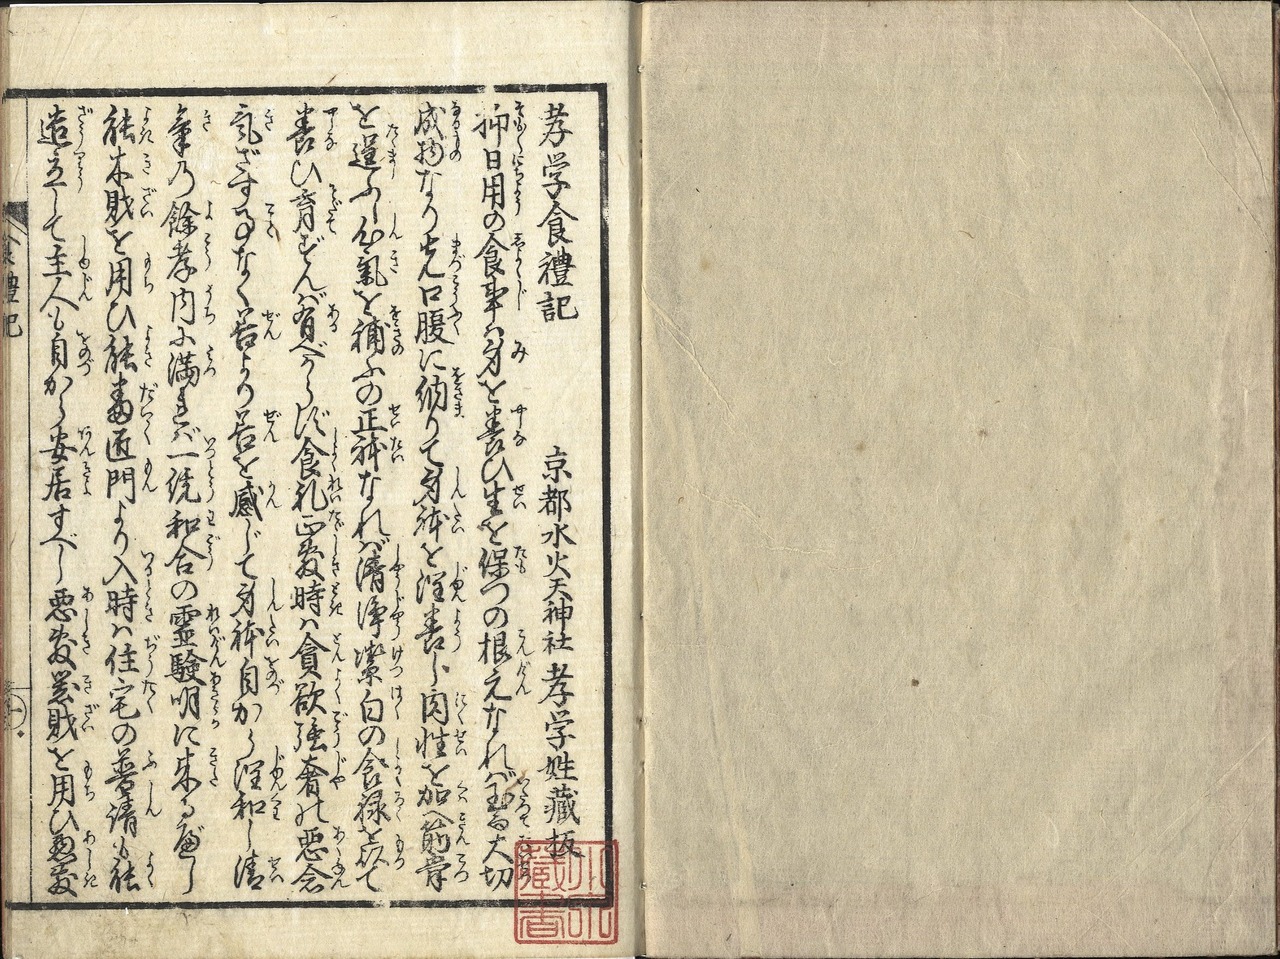 孝学食禮記
京都水火天神社 孝学姓藏板
抑日用の食事ハ身を養ひ生を保つの根元なれバ至而大切
成物なり先口腹に納りて身体を潤養し肉性を加へ筋骨
を逞ふし心氣を補ふの正体なれバ清浄潔白の食禄を以て
養ひ育ずんバ有べからず食礼正敷時ハ貪欲強奢の悪念
気ざす事なく善より善を感じて身体自から潤和し清
氣乃餘孝内に満れバ一統和合の霊験明に来る度し
能木財を用ひ能番匠門より入時ハ住宅の普請も能
造立して主人も自から安居すべし悪敷器財を用ひ悪敷
食禮記